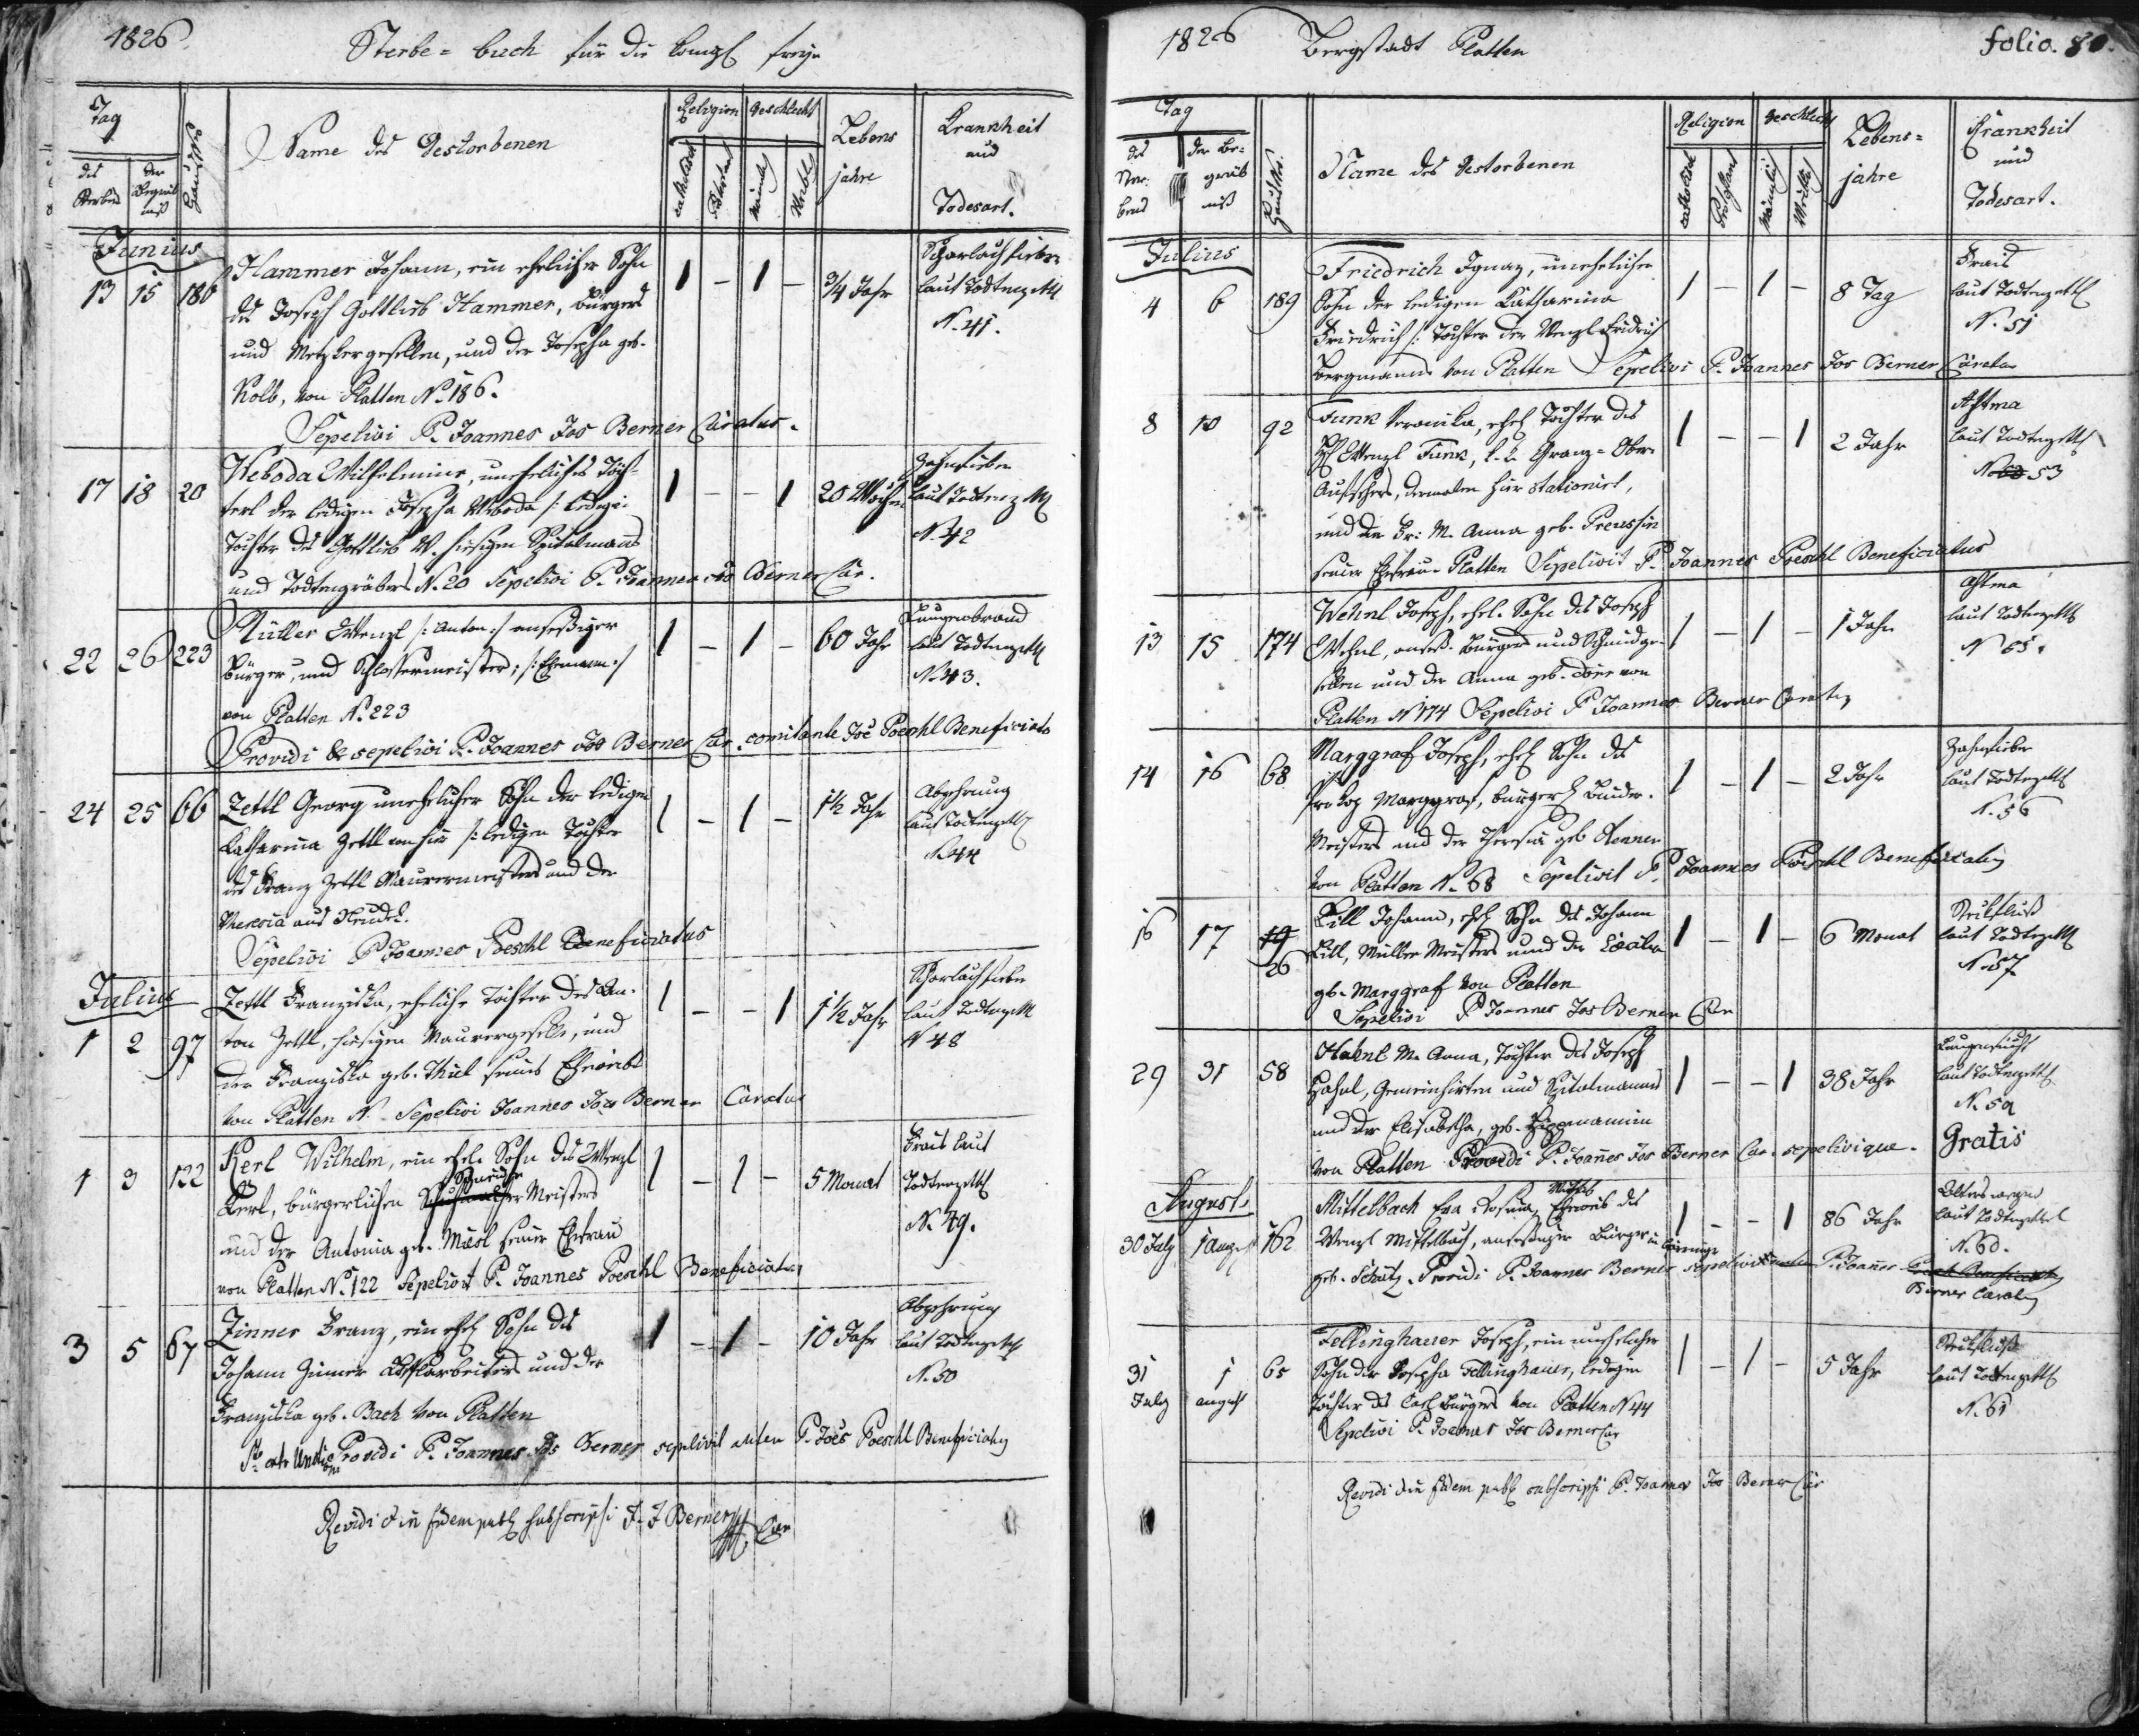 1826
Sterbe-buch für die königl freye
Tag
des Sterbens
der Begräbniß
Haus Nro
Name des Gestorbenen
Religion
katholisch
Protestant
Geschlecht
Männlich
Weiblich
Lebens jahre
Krankheit und Todesart.
Junius
13 15 180
Hammer Johann, ein ehelicher Sohn
des Joseph Gottlieb Hammer, Bürgers
und Metzkergesellen, und der Josepha geb.
Kolb, von Platten No 186.
Sepelivi P. Joannes Jos Berner Curatus.
1 - 1 -
3/4 Jahr
Scharlachfieber
laut Todtenzettl
N. 41.
17 18 20
Weboda Wilhelmine, uneheliches Töch-
terl der ledigen Josepha Weboda /: ledige
Tochter des Gottlieb W. hiesigen Spitalmanns
und Todtengräbers N. 20 Sepelivi P. Joannes Jos Berner Cur.
1 - - 1
20 Wochen
Zahnfieber
laut Todtenzettl
N. 42
22 26 223
Müller Wenzl /: Anton :/ ansessiger
Bürger, und Schlossermeister; /: Ehemann :/
von Platten No 223
Providi & sepelivi P. Joannes Jos Berner Cur. comitante Joë Poeschl Beneficiato
1 - 1 -
60 Jahr
Lungenbrand
laut Todtenzettl
N. 43.
24 25 66
Zettl Georg unehelicher Sohn der ledigen
Katharina Zettl von hier /: ledigen Tochter
des Franz Zettl Maurermeisters und der
Theresia aus Neudek.
Sepelivi P Joannes Poeschl Beneficiatus
1 - 1 -
1 1/2 Jahr
Abzehrung
laut Todtenzettl
N. 44
Julius
1 2 97
Zettl Franziska, eheliche Tochter des An-
ton Zettl, hiesigen Maurergesells, und
der Franziska geb. Thiel seines Eheweibs
von Platten N. Sepelivi Joannes Jos Berner Curatus
1 - - 1
1 1/2 Jahr
Scharlachfieber
laut Todtenzettl
N 48
1 3 122
Kerl Wilhelm, ein ehel. Sohn des Wenzl
Kerl, bürgerlichen Schneider Meisters
und der Antonia geb. Miesl seiner Ehefrau
von Platten No 122 Sepelivit P. Joannes Poeschl Beneficiatus
1 - 1 -
5 Monat
Frais laut
Todtenzettl
N. 49.
3 5 67
Zinner Franz, ein ehel Sohn des
Johann Zinner Löfflarbeiters und der
Franziska geb. Bach von Platten
Providi P. Joannes Jos Berner sepelivit autem P. Joës Poeschl Beneficiatus
1 - 1 -
10 Jahr
Abzehrung
laut Todtenzettl
N. 50
Revidi & in fidem publ subscripsi J. J Berner Cur
1826 Bergstadt Platten folio. 80.
Tag
des Sterbens
der Begräbniß
Haus Nro.
Name des Gestorbenen
Religion
katholisch
Protestant
Geschlecht
Männlich
Weiblich
Lebens-jahre
Krankheit und Todesart.
Julius
4 6 189
Friedrich Ignaz, unehelicher
Sohn der ledigen Katharina
Friedrich /: Tochter des Wenzl Friedrich
Bergmanns von Platten Sepelivi P. Joannes Jos Berner Curatus
1 - 1 -
8 Tag
Frais
laut Todtenzettl
N. 51
8 10 92
Funk Veronika, ehel Tochter des
Wenzl Funk, k. k. Granz-Ober-
Aufsehers, dermalen hier stationirt,
und der Fr: M. Anna geb. Preussin
seiner Ehefrau. Platten Sepelivit P. Joannes Poeschl Beneficiatus
1 - - 1
2 Jahr
Astma
laut Todtenzettl
N. 53
13 15 174
Wehnl Joseph, ehel. Sohn des Joseph
Wehnl, anseß. Bürger und Schmidge-
sellen und der Anna geb. von
Platten N 174 Sepelivi P Joannes Berner Curatus
1 - 1 -
1 Jahr
Astma
laut Todtenzettl
N 55.
14 16 68
Marggraf Joseph, ehel Sohn des
Prokop Marggraf, bürgerl Binder-
Meisters und der Theresia geb Renner
von Platten N. 68 Sepelivit P. Joannes Pöschl Beneficiatus
1 - 1 -
2 Jahr
Zahnfieber
laut Todtenzettl
N. 56
16 17 19 26
Lill Johann, ehel Sohn des Johann
Lill, Müller Meisters und der
geb. Marggraf von Platten
Sepelivi P Joannes Jos Berner Cur
1 - 1 -
6 Monat
Stickfluß
laut Todtenzettl
N. 57
29 31 58
Hahnl M. Anna, Tochter des Joseph
Hahnl, Gemeinhirten und Spitalmanns
und der Elisabetha, geb.
von Platten Providi P. Joannes Jos Berner Cur. sepelivique.
1 - - 1
38 Jahr
Lungensucht
laut Todtenzettl
N. 59
Gratis
August
30 July 1 August 162
Mittelbach Eva Rosina, Wittib Eheweib des
Wenzl Mittelbach, ansessigen Bürger
geb. Schütz. Providi P. Joannes Berner sepelivit P. Joannes Poeschl Beneficiatus
Berner Curatus
1 - - 1
86 Jahr
Alterswegen
laut Todtenzettel
N. 60.
31 July 1 august 65
Fellinghauer Joseph, ein unehelicher
Sohn der Josepha Fellinghauer, ledigen
Tochter des Carl Bürgers von Platten N 44
Sepelivi P. Joannes Jos Berner Cur
1 - 1 -
5 Jahr
Stickfluß
laut Todtenzettl
N. 61
Revidi & in fidem publ subscripsi P. Joannes Jos Berner Cur